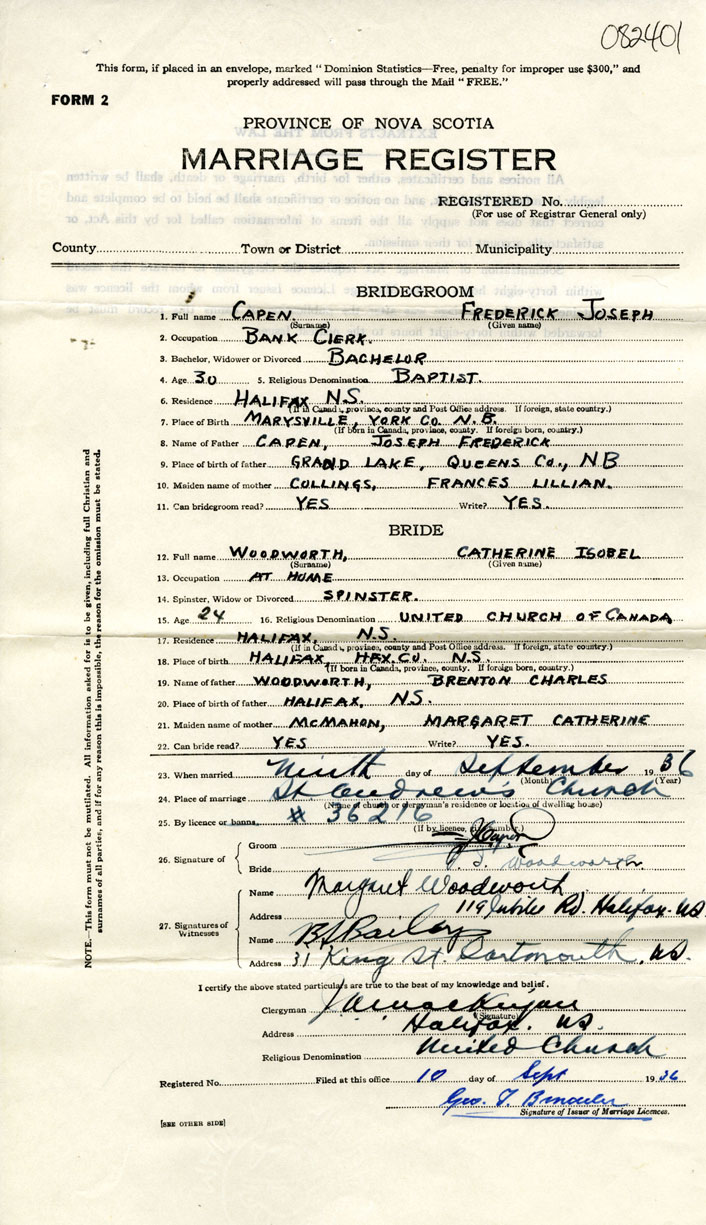 082401
This form, if placed in an envelope, marked "Dominion Statistics—Free, penalty for improper use $300," and
properly addressed will pass through the Mail "FREE."
FORM 2
PROVINCE OF NOVA SCOTIA
MARRIAGE REGISTER
REGISTERED No.
(For use of Registrar General only)
County Town or District Municipality
BRIDEGROOM
1. Full name CAPEN. FREDERICK JOSEPH
(Surname) (Given name)
2. Occupation BANK CLERK.
3. Bachelor, Widower or Divorced BACHELOR
4. Age 30 5. Religious Denomination BAPTIST.
6. Residence HALIFAX N.S.
(If in Canada, province, county and Post Office address. If foreign, state country.)
7. Place of Birth MARYSVILLE, YORK CO. N.B.
(If born in Canada, province, county. If foreign born, country.)
8. Name of Father CAPEN, JOSEPH FREDERICK
9. Place of birth of father GRAND LAKE, QUEENS CO., NB
10. Maiden name of mother COLLINGS, FRANCES LILLIAN.
11. Can bridegroom read? YES Write? YES.
BRIDE
12. Full name WOODWORTH, CATHERINE ISOBEL
(Surname) (Given name)
13. Occupation AT HOME
14. Spinster, Widow or Divorced SPINSTER.
15. Age 24 16. Religious Denomination UNITED CHURCH OF CANADA
17. Residence HALIFAX, N.S.
(If in Canada, province, county and Post Office address. If foreign, state country.)
18. Place of birth HALIFAX, HFX. CO. N.S.
(If born in Canada, province, county. If foreign born, country.)
19. Name of father WOODWORTH, BRENTON CHARLES
20. Place of birth of father HALIFAX, N.S.
21. Maiden name of mother MCMAHON, MARGARET CATHERINE
22. Can bride read? YES Write? YES.
23. When married Ninth day of September 1936
(Month) (Year)
24. Place of marriage St. Andrew's Church
(Name of church or clergyman's residence or location of dwelling house)
25. By licence or banns # 36216
(If by licence, give number.)
26. Signature of
Groom Capen
Bride Woodworth
27. Signatures of Witnesses
Name Margaret Woodworth
Address 119 Jubilee Rd. Halifax. N.S.
Name Bailey
Address 31 King St. Dartmouth, N.S.
I certify the above stated particulars are true to the best of my knowledge and belief.
Clergyman
(Signature)
Address Halifax. N.S.
Religious Denomination United Church
Registered No. Filed at this office 10 day of Sept 1936
Geo. T.
Signature of Issuer of Marriage Licences.
[SEE OTHER SIDE]
NOTE.—This form must not be mutilated. All information asked for is to be given, including full Christian and
surnames of all parties, and if for any reason this is impossible, the reason for the omission must be stated.